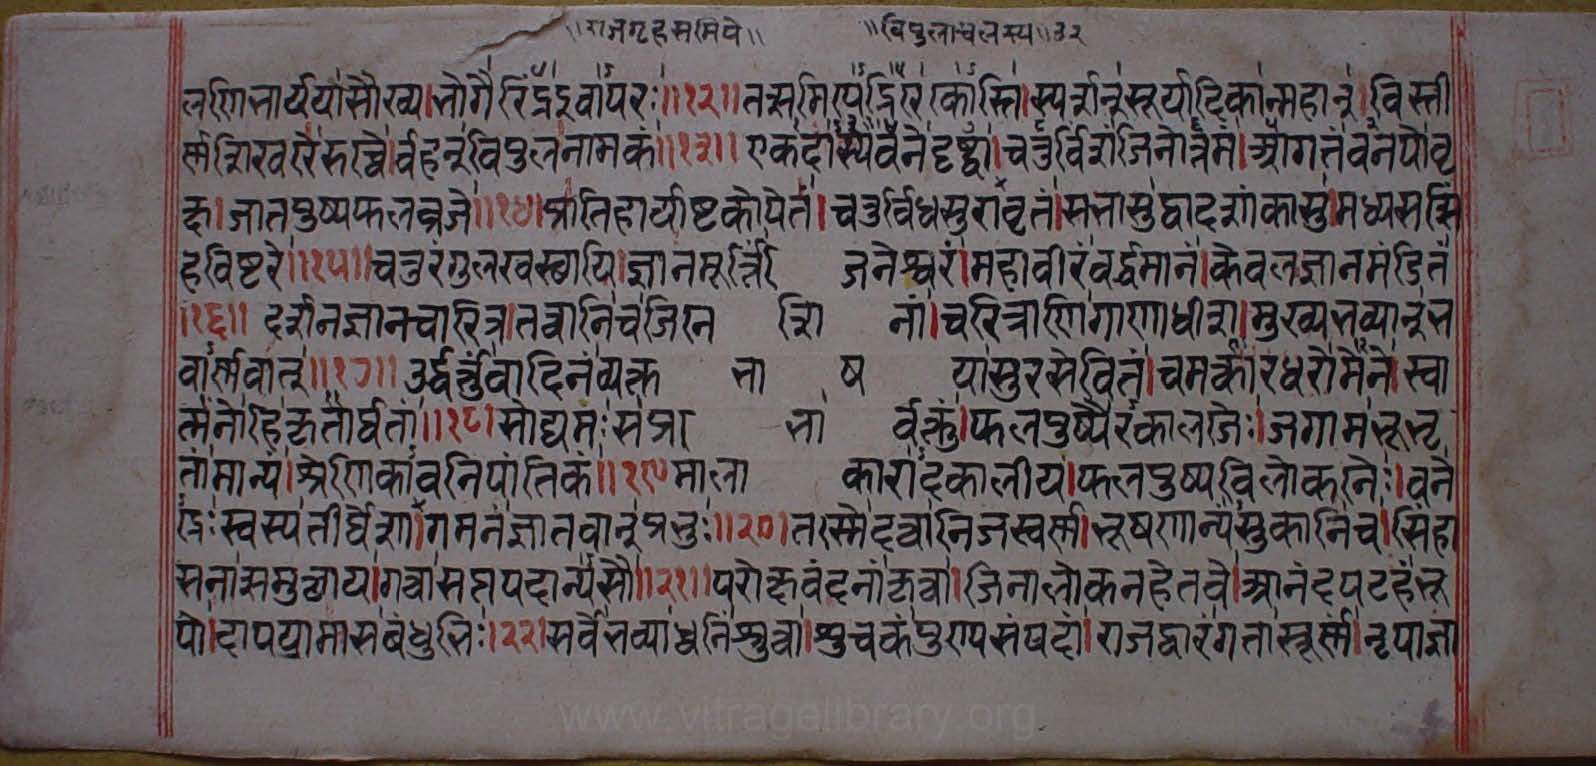 ॥राजगृहसमिपे॥ ॥विपुलाचलस्य॥३२
लक्षिभार्यया सौख्य।भोगैरिंद्रइवापरः॥१२॥तत्समिपेद्रिरेकोस्ति।स्पर्शन्सूर्यादिकान्महान्।विस्ती
र्णशिखरैरुच्चै।र्वहन्विपुलनामकं॥१३॥एकदास्यैव वने दृष्ट्वा।चतुर्विंशजिनोत्तमं।आगतं वनपो वृ
क्ष।जातपुष्पफलव्रजे॥१४॥प्रातिहार्याष्टकोपेतं।चतुर्विधसुरावृतं।सभासुद्वादशांकासु।मध्यसत्सिं
हविष्टरे॥१५॥चतुरंगुलखस्थायि।ज्ञानमूर्त्तिं जिनेश्वरं।महावीरं वर्द्धमानं।केवलज्ञानमंडितं
॥१६॥ दर्शनज्ञानचारित्र।तत्वानि च जिनेशिनां।चरित्राणि गणाधीश।मुख्यभव्यान्भ
वार्णवान्॥१७॥उर्द्धर्त्तुं वादिनं व्यक्त भाषया सुरसेवितं।चमत्कारधरो मेने।स्वा
त्मनो हि कृतार्थतां॥१८।सोद्यमः संप्रभार्वक्तुं।फलपुष्पैरकालजेः।जगाम भूभृ
तां मान्यं।श्रेणिकावनिपांतिकं॥१९ मालाकारादकालीय।फलपुष्पविलोकनेः।वने
द्रः स्वस्य तीर्थेशा।गमनं ज्ञातवान् प्रभुः॥२०।तस्मे दत्वा निजस्वर्ण।भूषणान्यंसुकानि च।सिंहा
सनात्समुत्थाय।गत्वा सप्तपदान्यसौ॥२१॥परोक्षवंदनां कृत्वा।जिनालोकनहेतवे।आनंदपटहं भू
पो।दापयामास बंधुभिः।२२।सर्वे भव्या ध्वनिं श्रुत्वा।शुचकं पुरापसंपदां।राजद्वारं गतास्तूर्णं।नृपाज्ञा
www.vitragelibrary.org